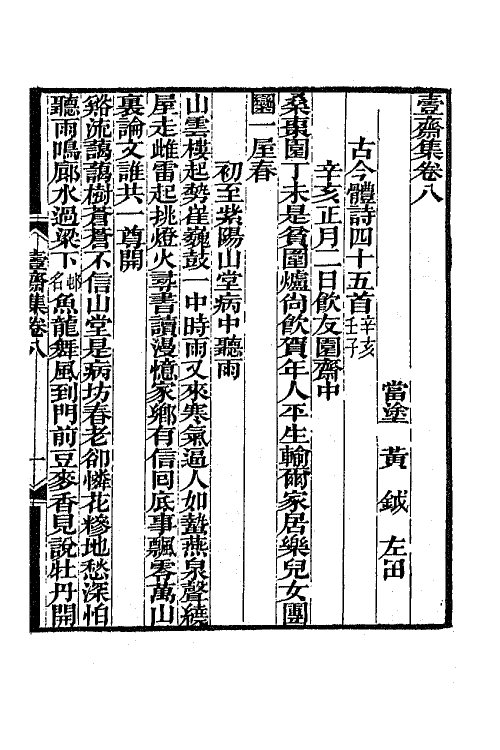 壹齋集卷八
當塗 黃 鉞 左田
古今體詩四十五首辛亥壬子
辛亥正月二日飲友園齋中
桑棗園丁未是貧圍爐尙飲賀年人平生輸爾家居樂兒女團
圞一屋春
初至紫陽山堂病中聽雨
山雲樓起勢崔巍鼓一中時雨又來寒氣逼人如蟄燕泉聲繞
屋走雌雷起挑燈火尋書讀漫憶家鄉有信回底事飄零萬山
裏論文誰共一尊開
谿流藹藹樹蒼蒼不信山堂是病坊春老卻憐花糝地愁深怕
聽雨鳴廊水過梁下魚龍舞風到門前豆麥香見說牡丹開
壹齋集卷八 一